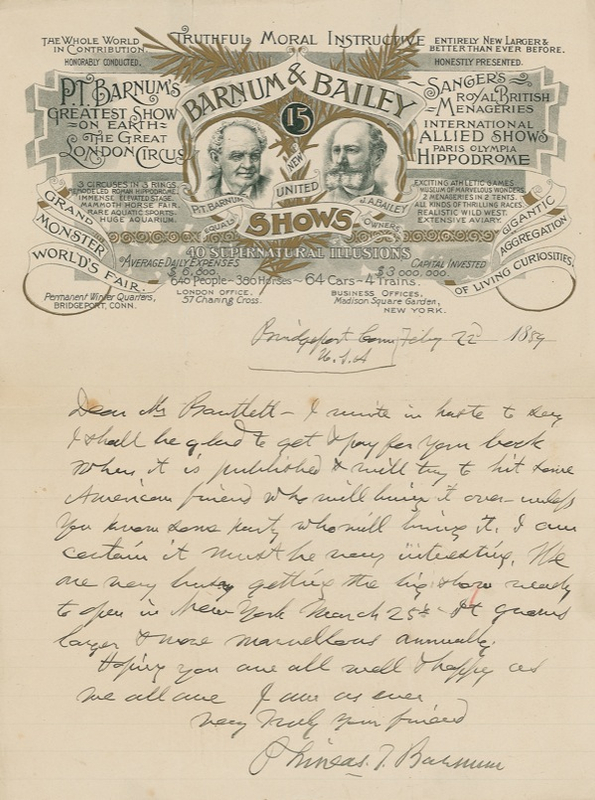 THE WHOLE WORLD
IN CONTRIBUTION.
HONORABLY CONDUCTED.
TRUTHFUL MORAL INSTRUCTIVE
ENTIRELY NEW LARGER &
BETTER THAN EVER BEFORE.
HONESTLY PRESENTED.
P.T. BARNUM'S
GREATEST SHOW
ON EARTH
THE GREAT
LONDON CIRCUS
BARNUM & BAILEY
15
NEW
UNITED
SHOWS
P.T. BARNUM
J.A. BAILEY
EQUAL
OWNERS
SANGER'S
ROYAL BRITISH
MENAGERIES
INTERNATIONAL
ALLIED SHOWS
PARIS OLYMPIA
HIPPODROME
3 CIRCUSES IN 3 RINGS.
REMODELED ROMAN HIPPODROME.
IMMENSE ELEVATED STAGE.
MAMMOTH HORSE FAIR.
RARE AQUATIC SPORTS.
HUGE AQUARIUM.
EXCITING ATHLETIC GAMES
MUSEUM OF MARVELOUS WONDERS.
2 MENAGERIES IN 2 TENTS.
ALL KINDS OF THRILLING RACES
REALISTIC WILD WEST.
EXTENSIVE AVIARY.
GRAND
MONSTER
WORLD'S FAIR.
GIGANTIC
AGGREGATION
OF LIVING CURIOSITIES.
40 SUPERNATURAL ILLUSIONS
AVERAGE DAILY EXPENSES
$ 6,600.
CAPITAL INVESTED
$ 3 000.000.
640 PEOPLE ~ 380 HORSES ~ 64 CARS ~ 4 TRAINS.
Permanent Winter Quarters,
BRIDGEPORT, CONN.
LONDON OFFICE.
57 Charing Cross.
BUSINESS OFFICES,
Madison Square Garden,
NEW YORK.
Bridgeport Conn Feby 22d 1889
U.S.A
Dear Mr Bartlett - I write in haste to say
I shall be glad to get & pay for your book
when it is published & will try to hit some
American friend who will bring it over - unless
you know some party who will bring it. I am
certain it must be very interesting. We
are very busy getting the big show ready
to open in New York March 25th It grows
larger & more marvellous annually.
Hoping you are all well & happy as
we all are I am as ever
very truly your friend
Phineas. T. Barnum